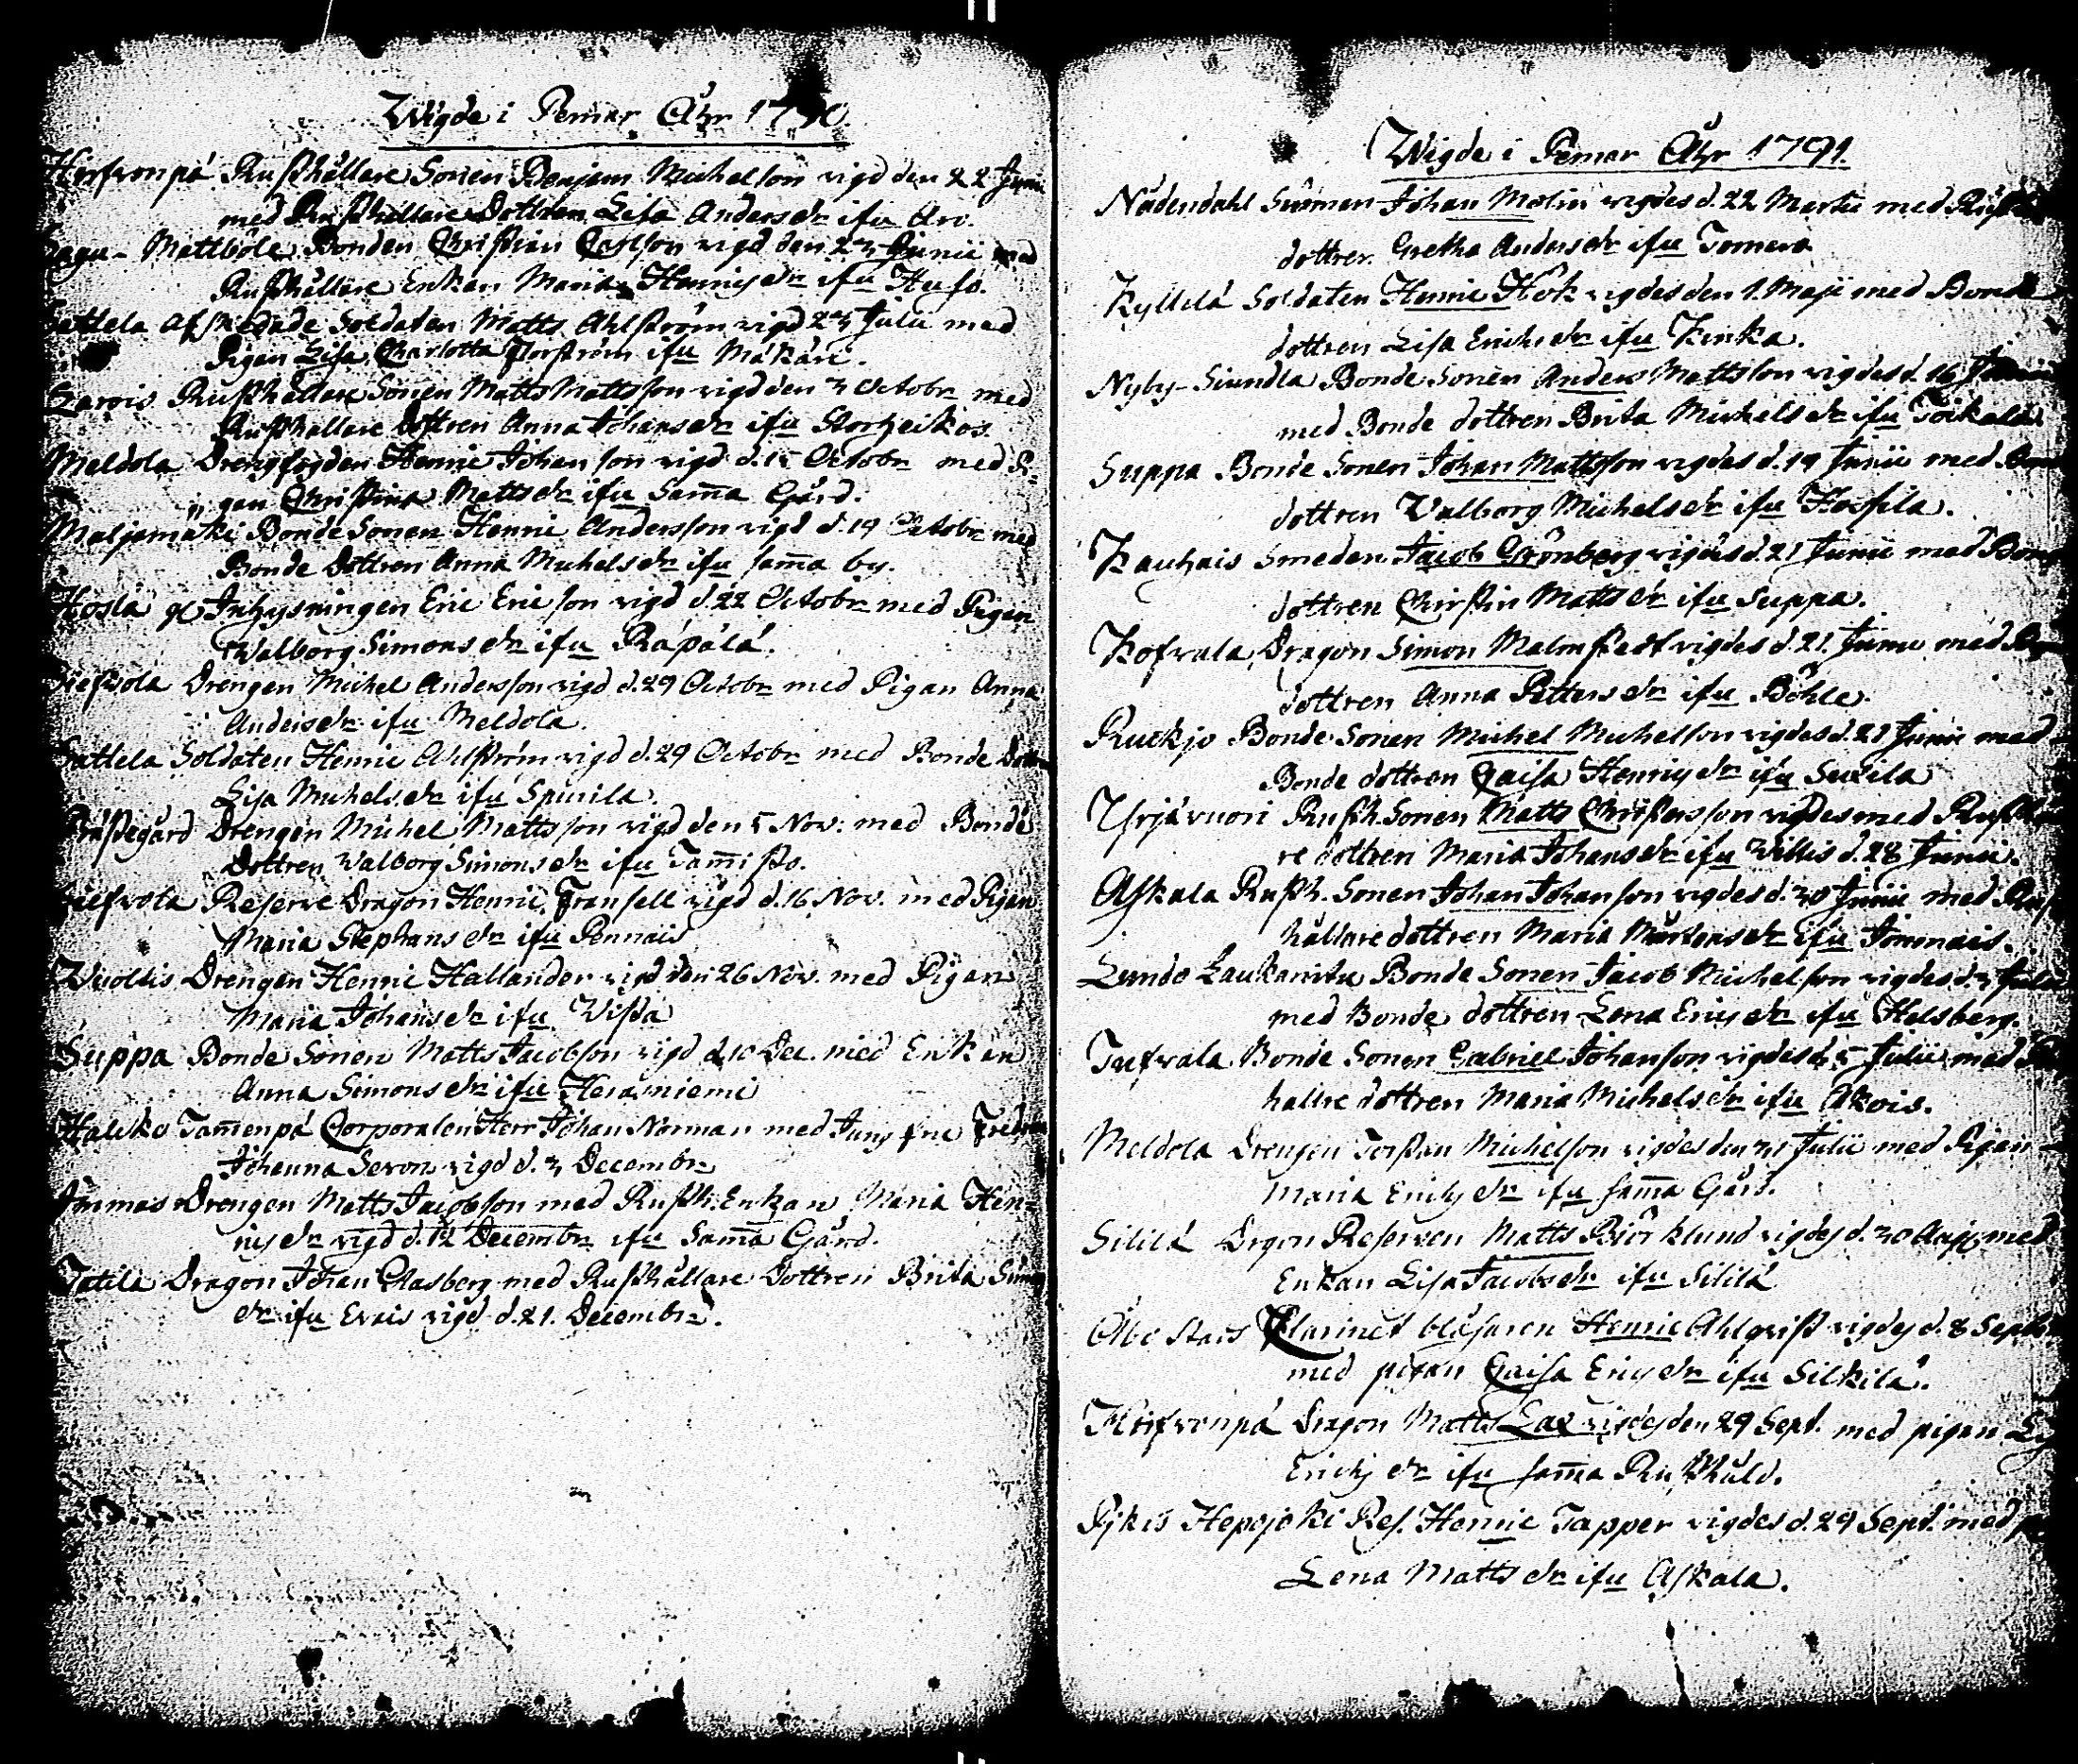 Wigde i Pemar Åhr 1790.
Hirfvonpä Rusthållare Sonen Benjam Michelson vigd den 22 Junii
med Rusthållare Dottren Lisa Andersdr ifrn Arv.
Sagu- Mattböle Bonden Christian Carlson vigd den 24 Junii med
Rusthållare Enkan Maria Henricsdr ifrn
Sattela Afskedade Soldaten Matts Ahlström vigd 25 Julii med
Pigan Lisa Charlotta Florström ifrn Mäkäri.
Rusthållare Sonen Matts Mattsson vigd den 3 Octobr med
Rusthållare Dottren Anna Johansdr ifrn Storheikos.
Meldola Drengfogden Henric Johanson vigd d. 15 Octobr med Pi=
„ gan Christina Mattsdr ifrn Sam̄a Gård.
Maljamäki Bonde Sonen Henric Andersson vigd d. 19 Octobr med
Bonde Dottren Anna Michelsdr ifrn sam̄a by.
Inhysningen Eric Ericson vigd d. 22 Octobr med Pigan
Walborg Simonsdr ifrn Räpälä.
Drengen Michel Andersson vigd d. 29 Octobr med Pigan Anna
Andersdr ifrn Meldola.
Sattela Soldaten Henric Ahlström vigd d. 29 Octobr med Bonde Dottren
Lisa Michelsdr ifrn Spurila.
Prästegård Drengen Michel Mattsson vigd den 5 Nov: med Bonde
Dottren Walborg Simonsdr ifrn Tam̄isto.
Reserve Dragon Henric Fransell vigd d. 16 Nov. med Pigan
Maria Stephansdr ifrn Pennais
Wuollis Drengen Henric Hallander vigd den 26 Nov. med Pigan
Maria Johansdr ifrn Wista
Suppa Bonde Sonen Matts Jacobson vigd d. 10 Dec. med Enkan
Anna Simonsdr ifrn Heraniemi
Haliko Tam̄enpä Corporalen Herr Johan Norman med Jungfru Fredrica
Johanna Seron vigd d. 3 Decembr
Drengen Matts Jacobson med Rusth. Enkan Maria Hen=
ricsdr vigd d. 12 Decembr ifrn Sam̄a Gård.
Tatila Dragon Johan Clasberg med Rusthållare Dottren Brita Simons
dr ifrn Evois vigd d. 21. Decembr.
Wigde i Pemar Åhr 1791.
Nådendahl Siöman Johan Molin vigdes d. 22 Martii med
dottren Gretha Andersdr ifrn Tomera
Kyllelä Soldaten Henric Hök vigdes den 1. Maji med Bonde
dottren Lisa Ericsdr ifrn Krika.
Nyby- Siundla Bonde Sonen Anders Mattsson vigdes d. 16 Junii
med Bonde dottren Brita Michelsdr ifrn Toikala
Suppa Bonde Sonen Johan Mattsson vigdes d. 19 Junii med Bonde
dottren Walborg Michelsdr ifrn
Kauhais Smeden Jacob Grönberg vigdes d. 21 Junii med Bonde
dottren Christin Mattsdr ifrn Suppa.
Kofvala Dragon Simon Malmstedt vigdes d. 21. Junii med
dottren Anna Pettersdr ifrn Böhle.
Ruokjo Bonde Sonen Michel Michelson vigdes d. 21 Junii med
Bonde dottren Caisa Henricsdr ifrn Suxila
Yrjävuori Rusth. Sonen Matts Christersson vigdes med Rusthålla
re dottren Maria Johansdr ifrn Willis d. 28 Junii.
Askala Rusth. Sonen Johan Johanson vigdes d. 30 Junii med Rust
hållare dottren Maria Mårtensdr ifrn
Lundo Laukanitu Bonde Sonen Jacob Michelson vigdes d. 3 Julii
med Bonde dottren Lena Ericsdr ifrn Helsberg.
Tufvala Bonde Sonen Gabriel Johanson vigdes d. 5 Julii med
hållre dottren Maria Michelsdr ifrn Akois.
Meldola Drengen Torstan Michelson vigdes den 31 Julii med Pigan
Maria Ericsdr ifrn sam̄a Gård.
Sililä Drgon Reserven Matts Biörklund vigdes d. 30 Aug: med
Enkan Lisa Jacobsdr ifrn Sililä
Åbo Stads Clarinet blåsaren Henric Ahlqvist vigdes d. 8 Septr
med pigan Caisa Ericsdr ifrn Silkilä.
Hirfvonpä Dragon Matts Lax vigdes den 29 Sept. med pigan
Ericsdr ifrn sam̄a Rusthåld.
Pikis Hepojoki Res. Henric Tapper vigdes d. 29 Sept. med
Lena Mattsdr ifrn Askala.